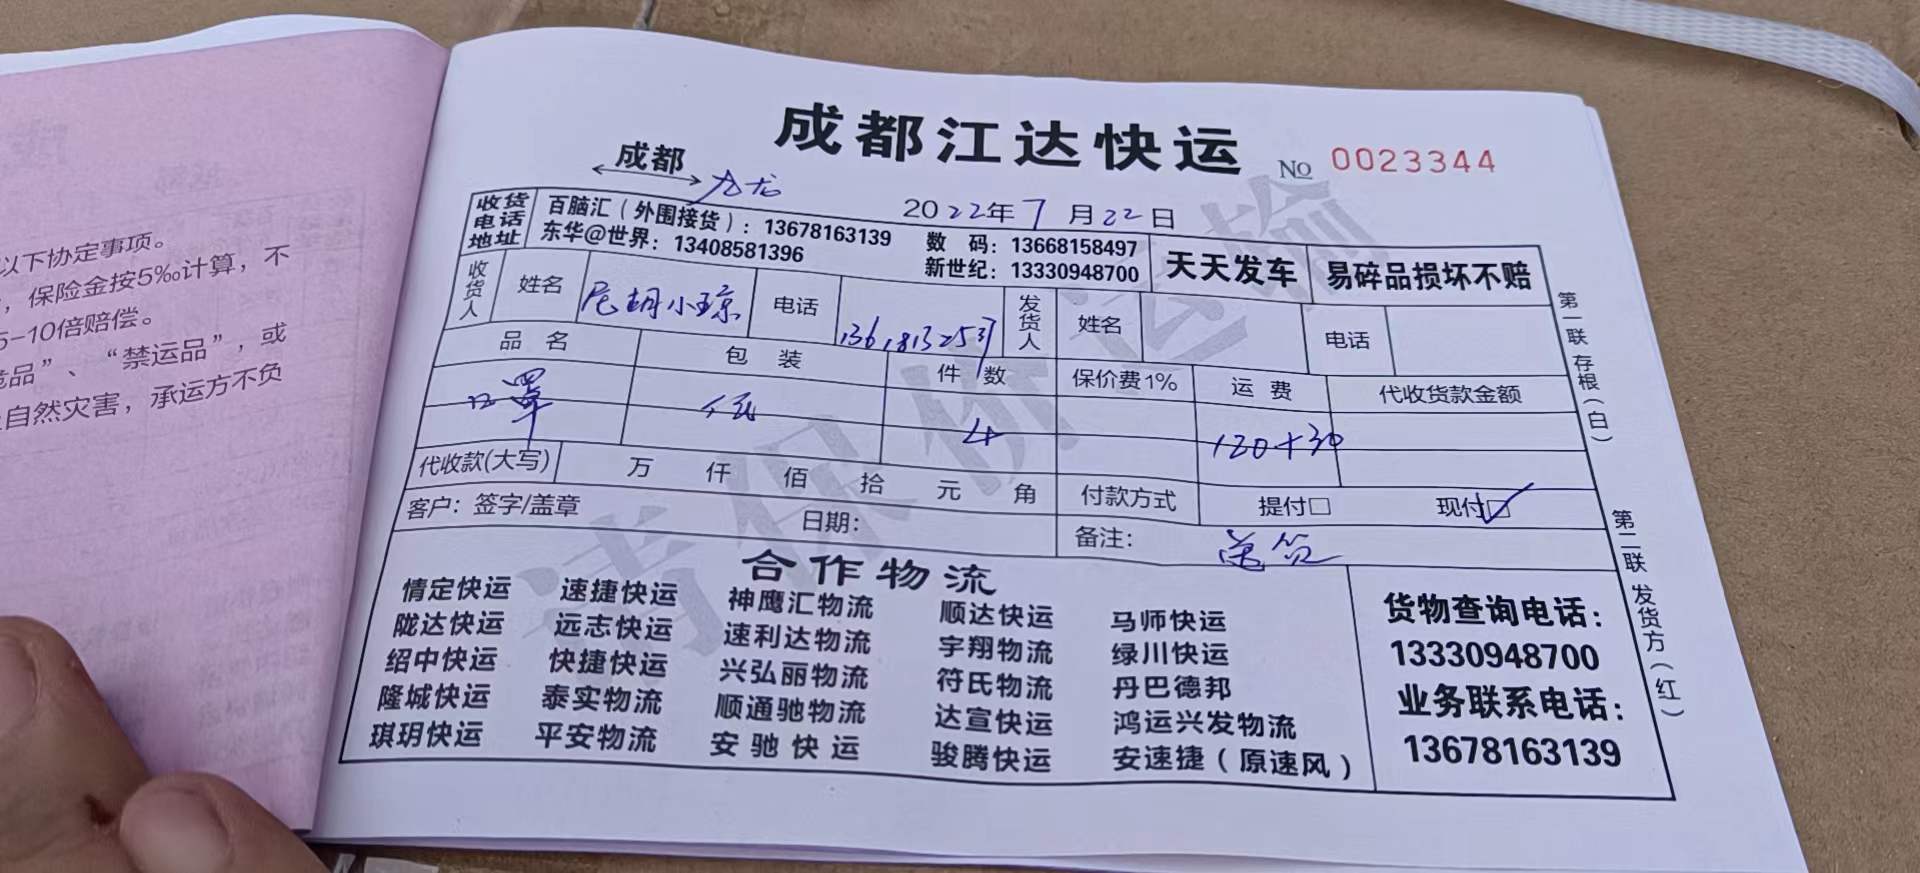 以下协定事项。
，保险金按5‰计算，不
5-10倍赔偿。
品”、“禁运品”，或
自然灾害，承运方不负
成都江达快运
No 0023344
成都 九龙
2022年7月22日
收货电话地址 百脑汇（外围接货）：13678163139 数 码：13668158497 天天发车 易碎品损坏不赔
东华@世界：13408581396 新世纪：13330948700
收货人 姓名 胡小琼 电话 发货人 姓名 电话
品 名 包 装 件 数 保价费1% 运 费 代收货款金额
口罩 纸 4 120+30
代收款(大写) 万 仟 佰 拾 元 角 付款方式 提付□ 现付☑
客户：签字/盖章 日期： 备注：
合作物流
情定快运 速捷快运 神鹰汇物流 顺达快运 马师快运
陇达快运 远志快运 速利达物流 宇翔物流 绿川快运
绍中快运 快捷快运 兴弘丽物流 符氏物流 丹巴德邦
隆城快运 泰实物流 顺通驰物流 达宣快运 鸿运兴发物流
琪玥快运 平安物流 安驰快运 骏腾快运 安速捷（原速风）
货物查询电话：
13330948700
业务联系电话：
13678163139
第一联 存根（白）
第二联 发货方（红）
请保价运输